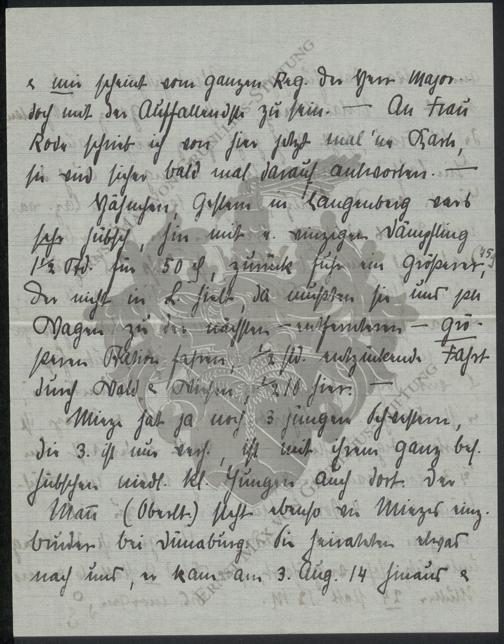 & mir scheint vom ganzen Reg. der Herr Major
doch mit der Auffallendste zu sein. — An Frau
Rode schrieb ich von hier jetzt mal 'ne Karte,
sie wird sicher bald mal darauf antworten. —
Gestern in Langenberg wars
sehr hübsch, hin mit e. winzigen Dämpfling
1½ Std. für 50 ₰, zurück fuhr ein Größerer,
der nicht in L. hielt, da mußten sie uns per
Wagen zu der nächsten — entfernteren — grö-
sseren Station fahren, ½ Std. entzückende Fahrt
durch Wald & Wiesen, ½ 10 hier. —
Mieze hat ja noch 3 jüngere Schwestern,
die 3. ist nur verh., ist mit ihrem ganz bes.
hübschen niedl. kl. Jungen auch dort. Der
Mann (Oberlt.) steht ebenso wie Miezes einz.
bruder bei Dünaburg. Sie heirateten etwas
nach uns, er kam am 3. Aug. 14 hinaus &